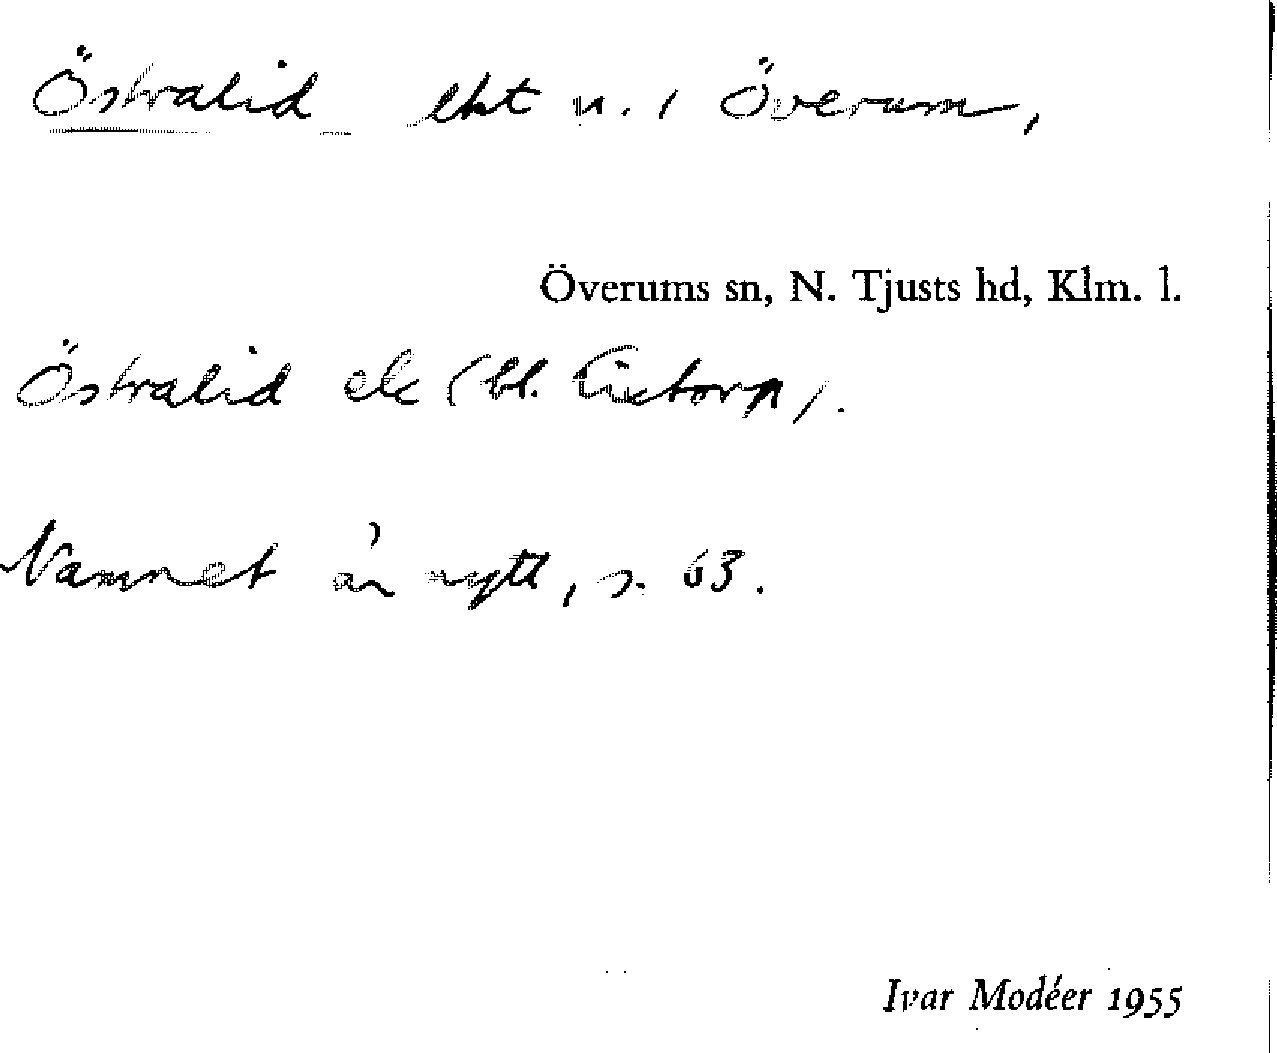 Östralid ekt n. i Överum,
Överums sn, N. Tjusts hd, Klm. l.
Östralid ek (bl.
Namnet är nytt, s. 63.
Ivar Modéer 1955